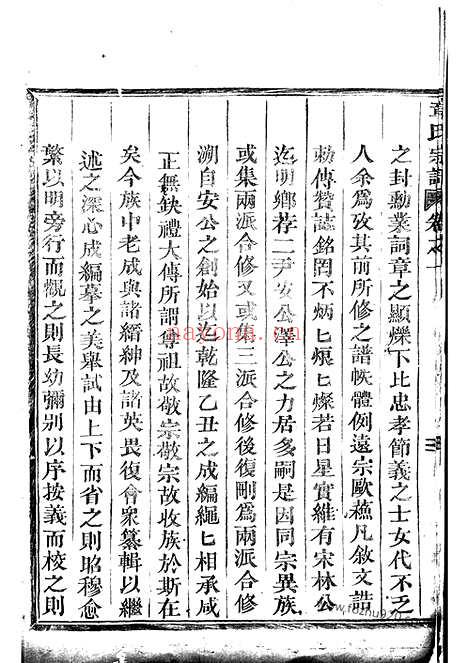 章氏宗譜 卷之一
之封勳業詞章之顯爍下比忠孝節義之士女代不乏
人余為攷其前所修之譜帙體例遠宗歐蘇凡敘文誥
勅傳贊誌銘罔不炳匕烺匕燦若日星實維有宋林公
迄明鄉荐二尹安公澤公之力居多嗣是因同宗異族
或集兩派合修又或集三派合修後復剛為兩派合修
溯自安公之創始以迄乾隆乙丑之成編繩匕相承咸
正無缺禮大傳所謂尊祖故敬宗敬宗故收族於斯在
矣今族中老成與諸縉紳及諸英畏復會衆纂輯以繼
述之深心成編摹之美舉試由上下而省之則昭穆愈
繁以明旁行而觀之則長幼彌别以序按義而校之則
nayona.cn